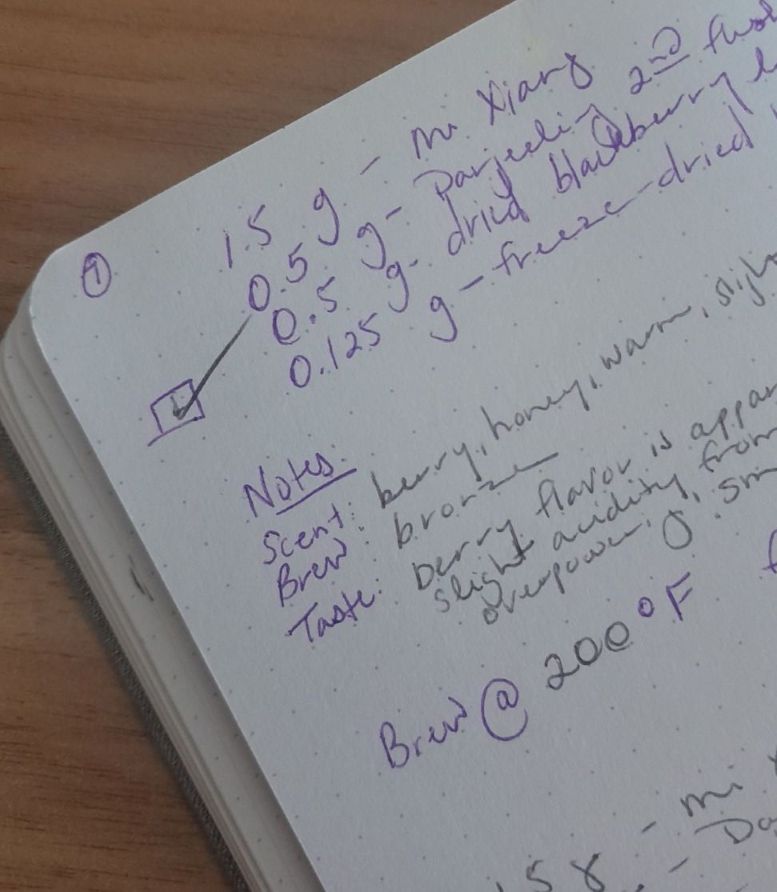 ① 1.5 g - mi Xiang
0.5 g - Darjeeling 2nd
0.5 g - dried blackberry
0.125 g - freeze-dried
Notes:
Scent: berry, honey, warm,
Brew: bronze
Taste: berry flavor is
slight acidity from
overpowering.
Brew @ 200°F
- mi